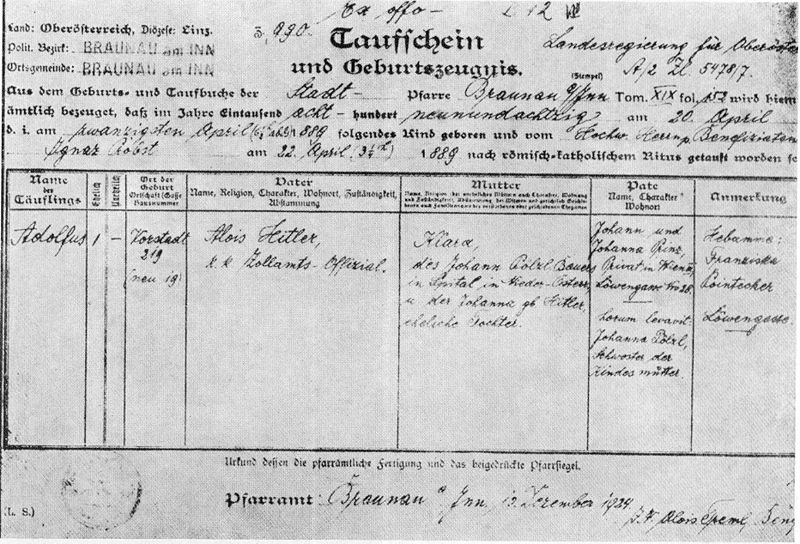 Ex offo
Land: Oberösterreich, Diözese: Linz.
Z. 990.
Polit. Bezirk: BRAUNAU am INN
Ortsgemeinde: BRAUNAU am INN
Taufschein
und Geburtszeugnis.
(Stempel)
Landesregierung für Oberöster
A/2 Zl. 5478/7.
Aus dem Geburts- und Taufbuche der Stadt- Pfarre Braunau a/Inn Tom. XIX fol. 152 wird hiem
ämtlich bezeuget, daß im Jahre Eintausend acht- hundert neunundachtzig am 20. April
d. i. am zwanzigsten April 1889 folgendes Kind geboren und vom Hochw. Herrn Benefiziaten
Ignaz Probst am 22. April 1889 nach römisch-katholischem Ritus getauft worden se
Name des Täuflings
Ehelich
Unehelich
Ort der Geburt Ortschaft (Gasse) Hausnummer
Vater
Name, Religion, Charakter, Wohnort, Zuständigkeit, Abstammung
Mutter
Pate
Name, Charakter Wohnort
Anmerkung
Adolfus
1
–
Vorstadt
219
(neu 19)
Alois Hitler,
k. k. Zollamts-Offizial.
Klara,
des Johann Pölzl, Bauers
in Spital in Nieder-Österr.
u der Johanna gb Hitler,
eheliche Tochter.
Johann und
Johanna Prinz,
Privat in Wien
Löwengasse No 28.
horum levavit:
Johanna Pölzl,
Schwester der
Kindesmutter.
Hebamme:
Franziska
Pointecher
Löwengasse.
Urkund dessen die pfarrämtliche Fertigung und das beigedrückte Pfarrsiegel.
Pfarramt: Braunau a Inn,
Dezember 1934
(L. S.)